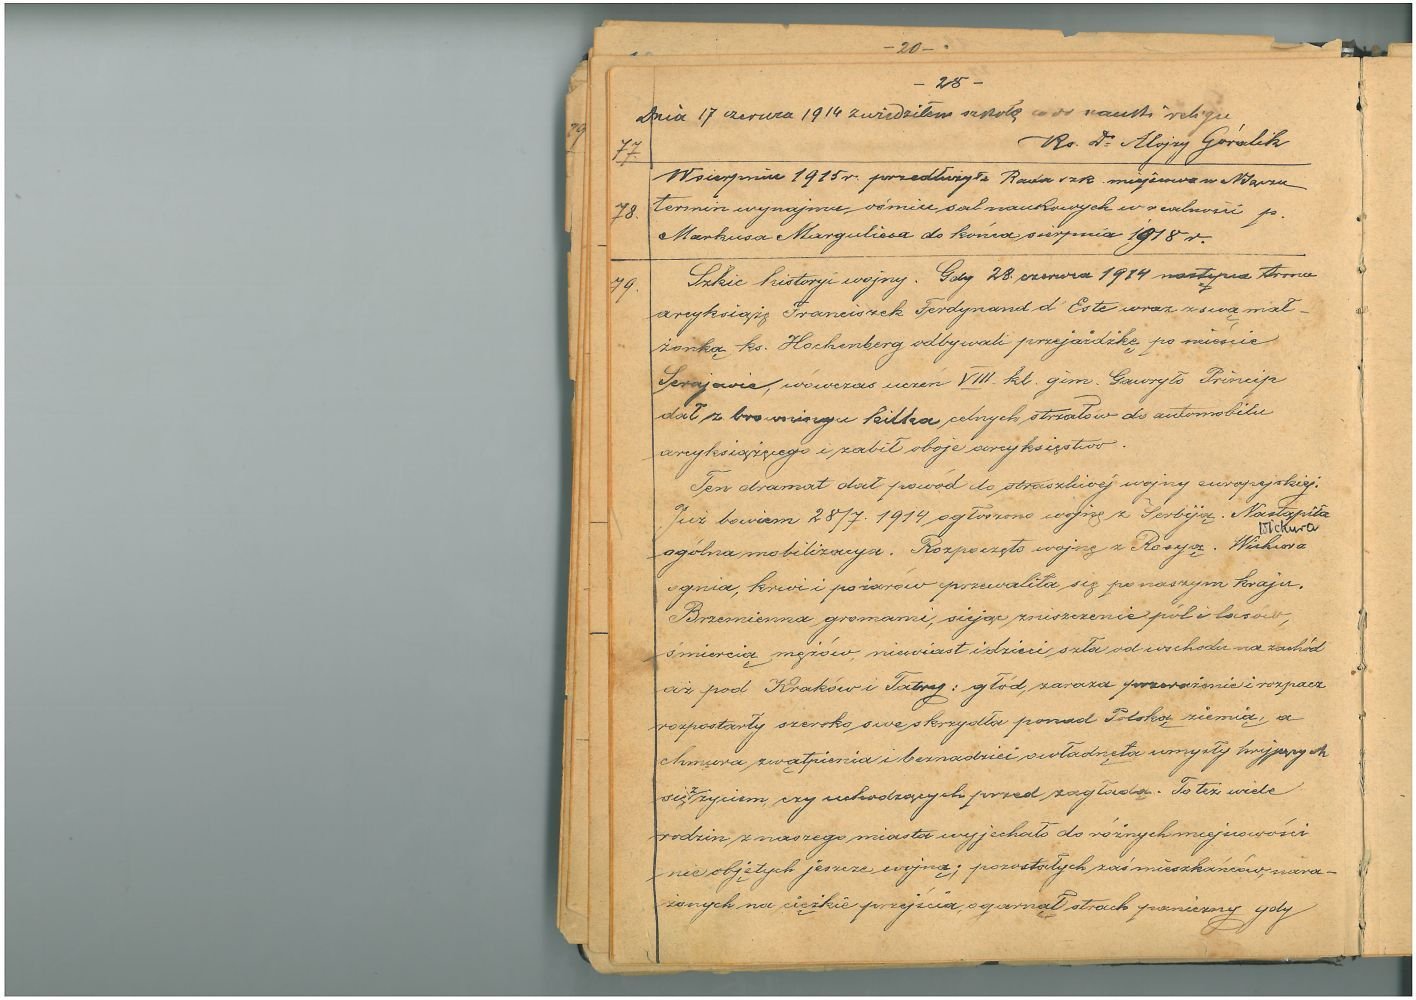 - 20 -
- 25 -
79
Dnia 17 czerwca 1914 zwiedziłem szkołę co do nauki religii
77.
Ks. Dr Alojzy Góralik
W sierpniu 1915 r. przedłużyła Rada szk. miejscowa w N. Sączu
78. termin wynajmu ośmiu sal naukowych w realności p.
Markusa Marguliesa do końca sierpnia 1918 r.
79. Szkic historyi wojny. Gdy 28. czerwca 1914 następca tronu
arcyksiążę Franciszek Ferdynand d' Este wraz z swą mał-
żonką ks. Hochenberg odbywali przejażdżkę po mieście
Serajewie, wówczas uczeń VIII. kl. gim. Gawryło Princip
dał z browningu kilka celnych strzałów do automobilu
arcyksiążęcego i zabił oboje arcyksięstwo.
Ten dramat dał powód do straszliwéj wojny europejskiej.
Już bowiem 28/7. 1914 ogłoszono wojnę z Serbiją. Nastąpiła
Wichura
ogólna mobilizacya. Rozpoczęto wojnę z Rosyą. Wichura
ognia, krwi i pożarów przewaliła się po naszym kraju.
Brzemienna gromami, siejąc zniszczenie pól i lasów,
śmiercią mężów, niewiast i dzieci, szła od wschodu na zachód
aż pod Kraków i Tatry; głód, zaraza przerażenie i rozpacz
rozpostarły szeroko swe skrzydła ponad Polską ziemią, a
chmura zwątpienia i beznadziei owładnęła umysły kryjących
się z życiem, czy uchodzących przed zagładą. To też wiele
rodzin z naszego miasta wyjechało do różnych miejscowości
nie objętych jeszcze wojną; pozostałych zaś mieszkańców, nara-
żonych na ciężkie przejścia, ogarnął strach paniczny gdy